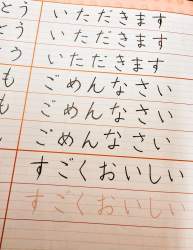 とう いただきます
とう いただきます
とう いただきます
も ごめんなさい
も ごめんなさい
ごめんなさい
すごくおいしい
すごくおいしい